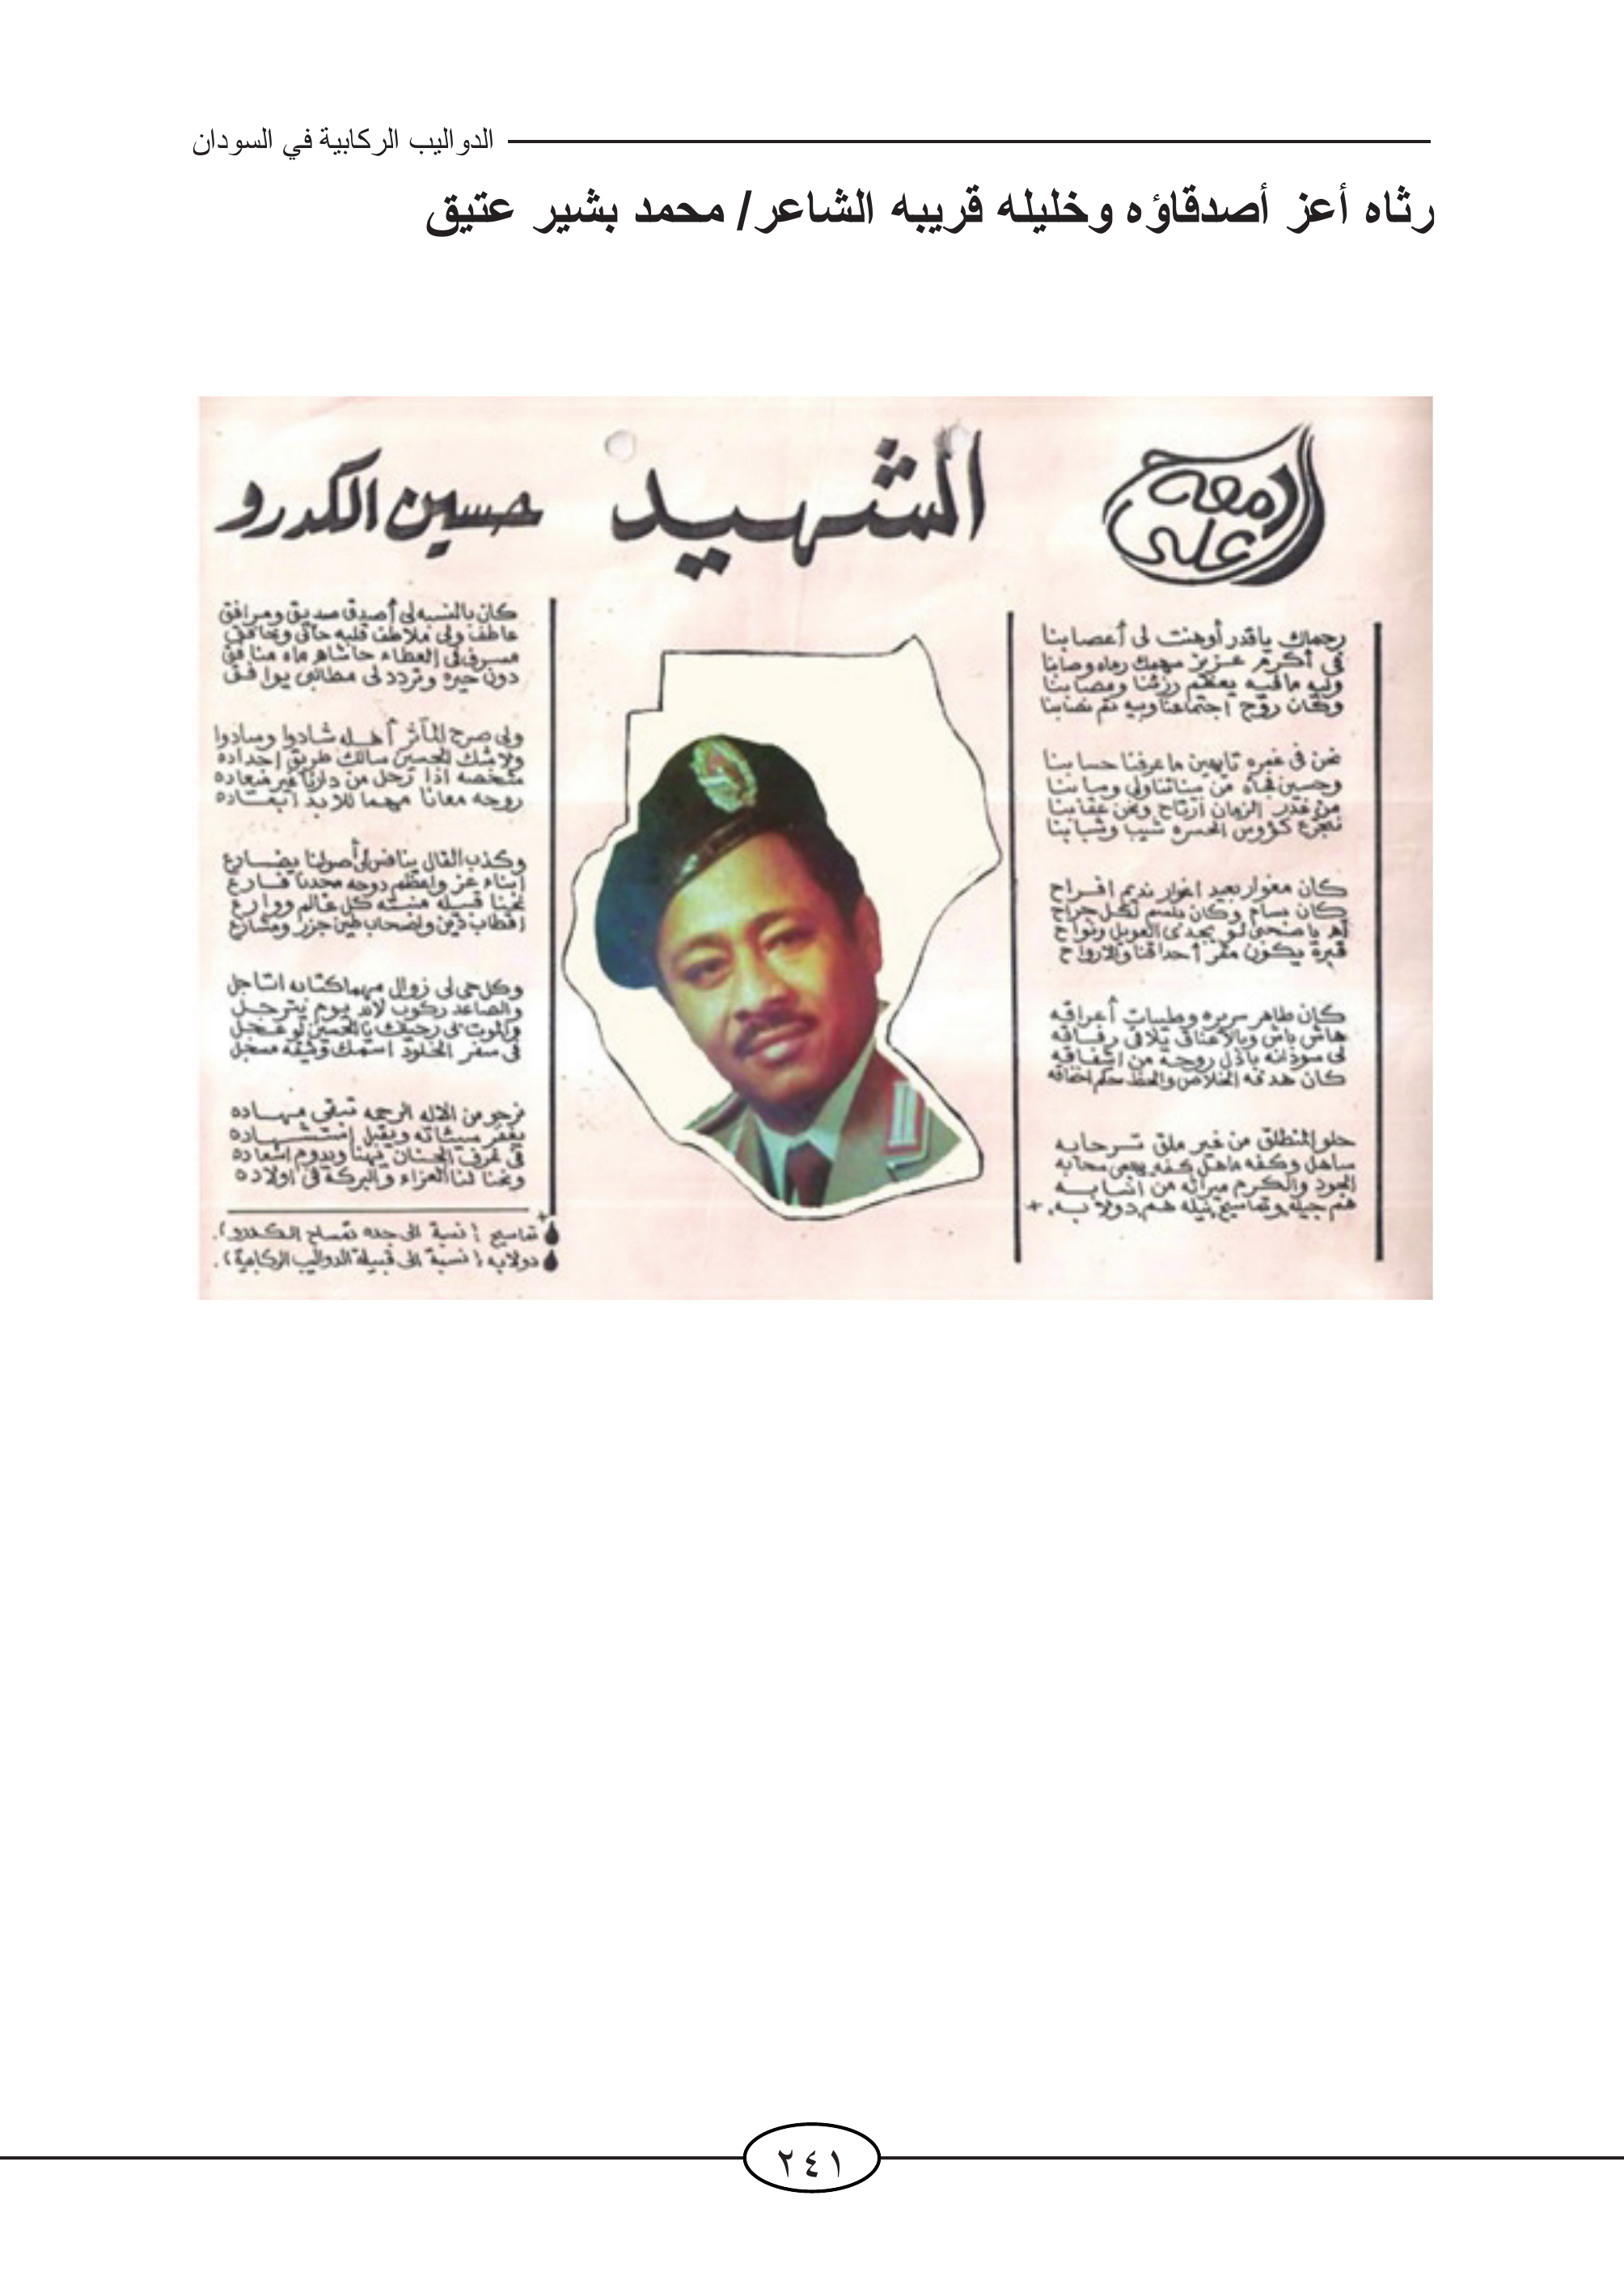 الدواليب الركابية في السودان
رثاه أعز أصدقاؤه وخليله قريبه الشاعر/ محمد بشير عتيق
دمعة على
الشهيد
حسين الكدرو
رجماك ياقدر أوهنت لى أعصابنا
فى أكرم عزيز سهمك رماه وصابنا
وليه مافيه يعظم رزئنا ومصابنا
وكان روح اجتماعنا وبيه تم نصابنا
نحن فى غمره تايهين ماعرفنا حسابنا
وحسين فجأه من بيناتنا ولى وسابنا
من غدر الزمان ارتاح ونحن عقابنا
نتجرع كؤوس الحسره شيب وشبابنا
كان مغوار بعيد اغوار نديم افراح
كان بسام وكان بلسم لكل جراح
آه ياصحى لو يجدى العويل ونواح
قبرة يكون مقر أحداقنا والارواح
كان طاهر سريره وطيبات أعراقه
هاش باش وبالاعناق يلاقى رفاقه
لى سودانه باذل روحه من اشفاقه
كان هدفه الخلاص والحظ حكم اخفاقه
حلو المنطلق من غير ملق ترحابه
ساهل وكفه ماهل كفه يهمى سحابه
الجود والكرم ميراثه من انسابه
هم جيله وتماسيح نيله هم دولابه +
كان بالنسبه لى أصدق صديق ومرافق
عاطف ولى ملاطف قلبه حانى وخافق
مسرف فى العطاء حاشاهو ماه منافق
دون حيره وتردد لى مطالبى يوافق
ولى صرح المآثر أهله شادوا وسادوا
ولاشك الحسين سالك طريق اجداده
شخصه اذا رحل من دارنا غير ميعاده
روحه معانا مهما للابد ابعاده
وكذب القال ينافس لى أصولنا يضارع
ابناء عز واعظم دوحه مجدنا فارع
نحنا قبيله منسه كل عالم ووارع
اقطاب دين واصحاب طين جزر ومشارع
وكل حى لى زوال مهما كتابه اتأجل
والصاعد ركوب لابد يوم يترجل
والموت لى رحيلك يا الحسين لو عجل
فى سفر الخلود اسمك وثيقه مسجل
نرجو من الاله الرحمه تبقى مهاده
يغفر سيئاته ويقبل استشهاده
فى غرف الجنان يهنا ويدوم اسعاده
ونحنا لنا العزاء والبركة فى اولاده
تماسيح (نسبة الى جده تمساح الكدرو).
دولابه (نسبة الى قبيلة الدواليب الركابية).
٢٤١